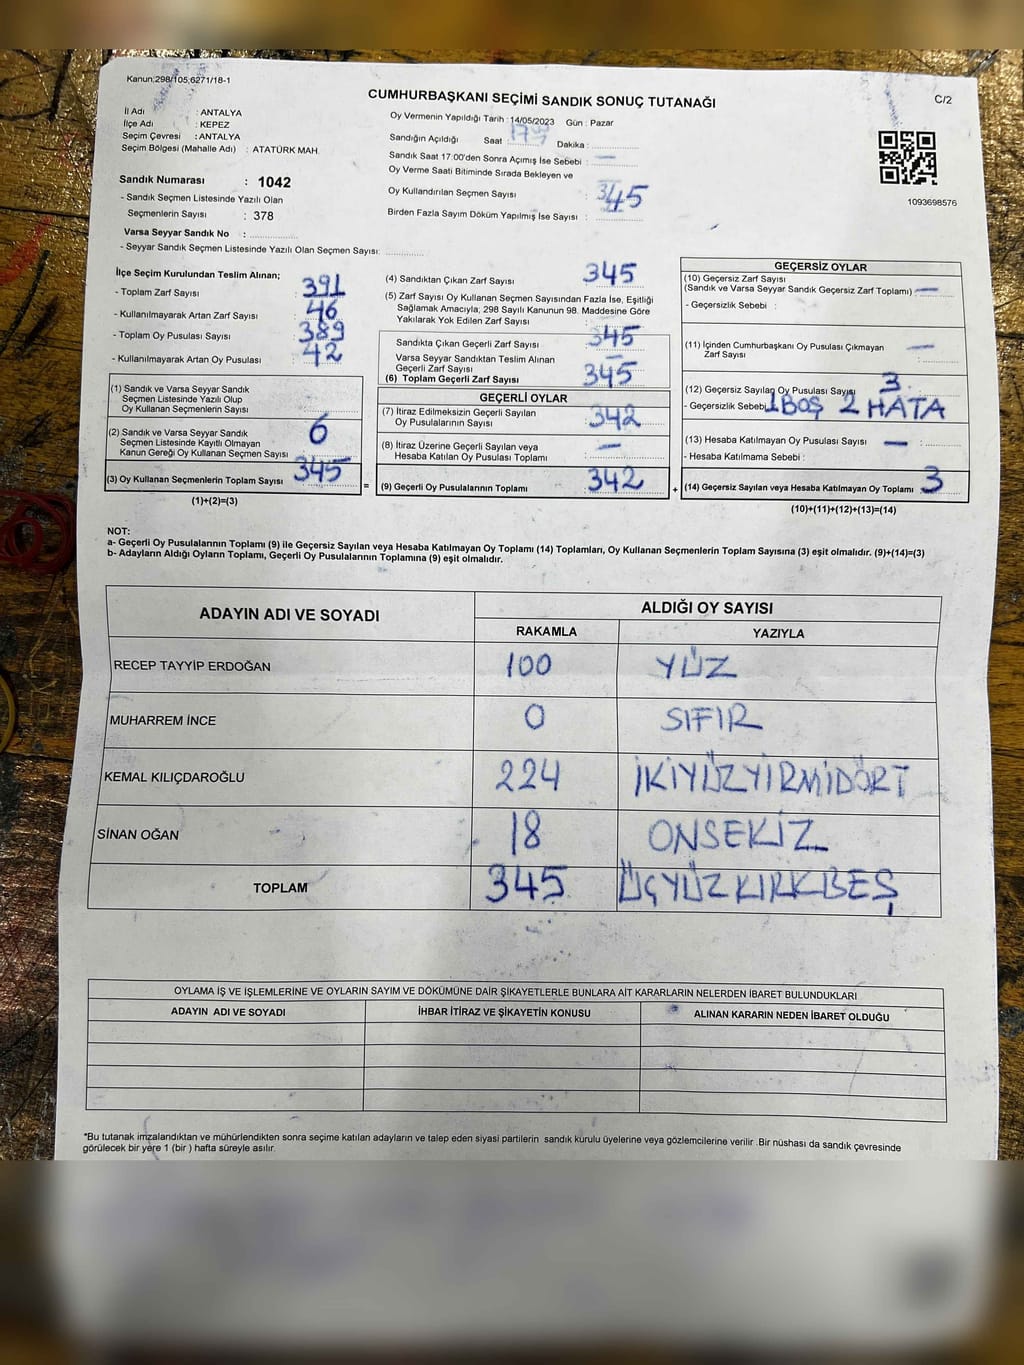 Kanun:298/105,6271/18-1
CUMHURBAŞKANI SEÇİMİ SANDIK SONUÇ TUTANAĞI
C/2
İl Adı : ANTALYA
İlçe Adı : KEPEZ
Seçim Çevresi : ANTALYA
Seçim Bölgesi (Mahalle Adı) : ATATÜRK MAH.
Sandık Numarası : 1042
- Sandık Seçmen Listesinde Yazılı Olan
Seçmenlerin Sayısı : 378
Varsa Seyyar Sandık No :
- Seyyar Sandık Seçmen Listesinde Yazılı Olan Seçmen Sayısı:
Oy Vermenin Yapıldığı Tarih : 14/05/2023 Gün : Pazar
Sandığın Açıldığı Saat Dakika :
Sandık Saat 17:00'den Sonra Açımış İse Sebebi : —
Oy Verme Saati Bitiminde Sırada Bekleyen ve
Oy Kullandırılan Seçmen Sayısı : 345
Birden Fazla Sayım Döküm Yapılmış İse Sayısı :
1093698576
İlçe Seçim Kurulundan Teslim Alınan;
- Toplam Zarf Sayısı : 391
- Kullanılmayarak Artan Zarf Sayısı : 46
- Toplam Oy Pusulası Sayısı : 389
- Kullanılmayarak Artan Oy Pusulası : 42
(1) Sandık ve Varsa Seyyar Sandık
Seçmen Listesinde Yazılı Olup
Oy Kullanan Seçmenlerin Sayısı :
(2) Sandık ve Varsa Seyyar Sandık
Seçmen Listesinde Kayıtlı Olmayan
Kanun Gereği Oy Kullanan Seçmen Sayısı : 6
(3) Oy Kullanan Seçmenlerin Toplam Sayısı : 345
(1)+(2)=(3)
=
(4) Sandıktan Çıkan Zarf Sayısı : 345
(5) Zarf Sayısı Oy Kullanan Seçmen Sayısından Fazla İse, Eşitliği
Sağlamak Amacıyla, 298 Sayılı Kanunun 98. Maddesine Göre
Yakılarak Yok Edilen Zarf Sayısı :
Sandıkta Çıkan Geçerli Zarf Sayısı : 345
Varsa Seyyar Sandıktan Teslim Alınan
Geçerli Zarf Sayısı : —
(6) Toplam Geçerli Zarf Sayısı : 345
GEÇERLİ OYLAR
(7) İtiraz Edilmeksizin Geçerli Sayılan
Oy Pusulalarının Sayısı : 342
(8) İtiraz Üzerine Geçerli Sayılan veya
Hesaba Katılan Oy Pusulası Toplamı : —
(9) Geçerli Oy Pusulalarının Toplamı : 342
+
GEÇERSİZ OYLAR
(10) Geçersiz Zarf Sayısı
(Sandık ve Varsa Seyyar Sandık Geçersiz Zarf Toplamı) : —
- Geçersizlik Sebebi :
(11) İçinden Cumhurbaşkanı Oy Pusulası Çıkmayan
Zarf Sayısı : —
(12) Geçersiz Sayılan Oy Pusulası Sayısı : 3
- Geçersizlik Sebebi : 1 BOŞ 2 HATA
(13) Hesaba Katılmayan Oy Pusulası Sayısı : —
- Hesaba Katılmama Sebebi :
(14) Geçersiz Sayılan veya Hesaba Katılmayan Oy Toplamı : 3
(10)+(11)+(12)+(13)=(14)
NOT:
a- Geçerli Oy Pusulalarının Toplamı (9) ile Geçersiz Sayılan veya Hesaba Katılmayan Oy Toplamı (14) Toplamları, Oy Kullanan Seçmenlerin Toplam Sayısına (3) eşit olmalıdır. (9)+(14)=(3)
b- Adayların Aldığı Oyların Toplamı, Geçerli Oy Pusulalarının Toplamına (9) eşit olmalıdır.
ADAYIN ADI VE SOYADI
ALDIĞI OY SAYISI
RAKAMLA YAZIYLA
RECEP TAYYİP ERDOĞAN 100 YÜZ
MUHARREM İNCE 0 SIFIR
KEMAL KILIÇDAROĞLU 224 İKİYÜZYİRMİDÖRT
SİNAN OĞAN 18 ONSEKİZ
TOPLAM 345 ÜÇYÜZKIRKBEŞ
OYLAMA İŞ VE İŞLEMLERİNE VE OYLARIN SAYIM VE DÖKÜMÜNE DAİR ŞİKAYETLERLE BUNLARA AİT KARARLARIN NELERDEN İBARET BULUNDUKLARI
ADAYIN ADI VE SOYADI İHBAR İTİRAZ VE ŞİKAYETİN KONUSU ALINAN KARARIN NEDEN İBARET OLDUĞU
*Bu tutanak imzalandıktan ve mühürlendikten sonra seçime katılan adayların ve talep eden siyasi partilerin sandık kurulu üyelerine veya gözlemcilerine verilir .Bir nüshası da sandık çevresinde
görülecek bir yere 1 (bir ) hafta süreyle asılır.